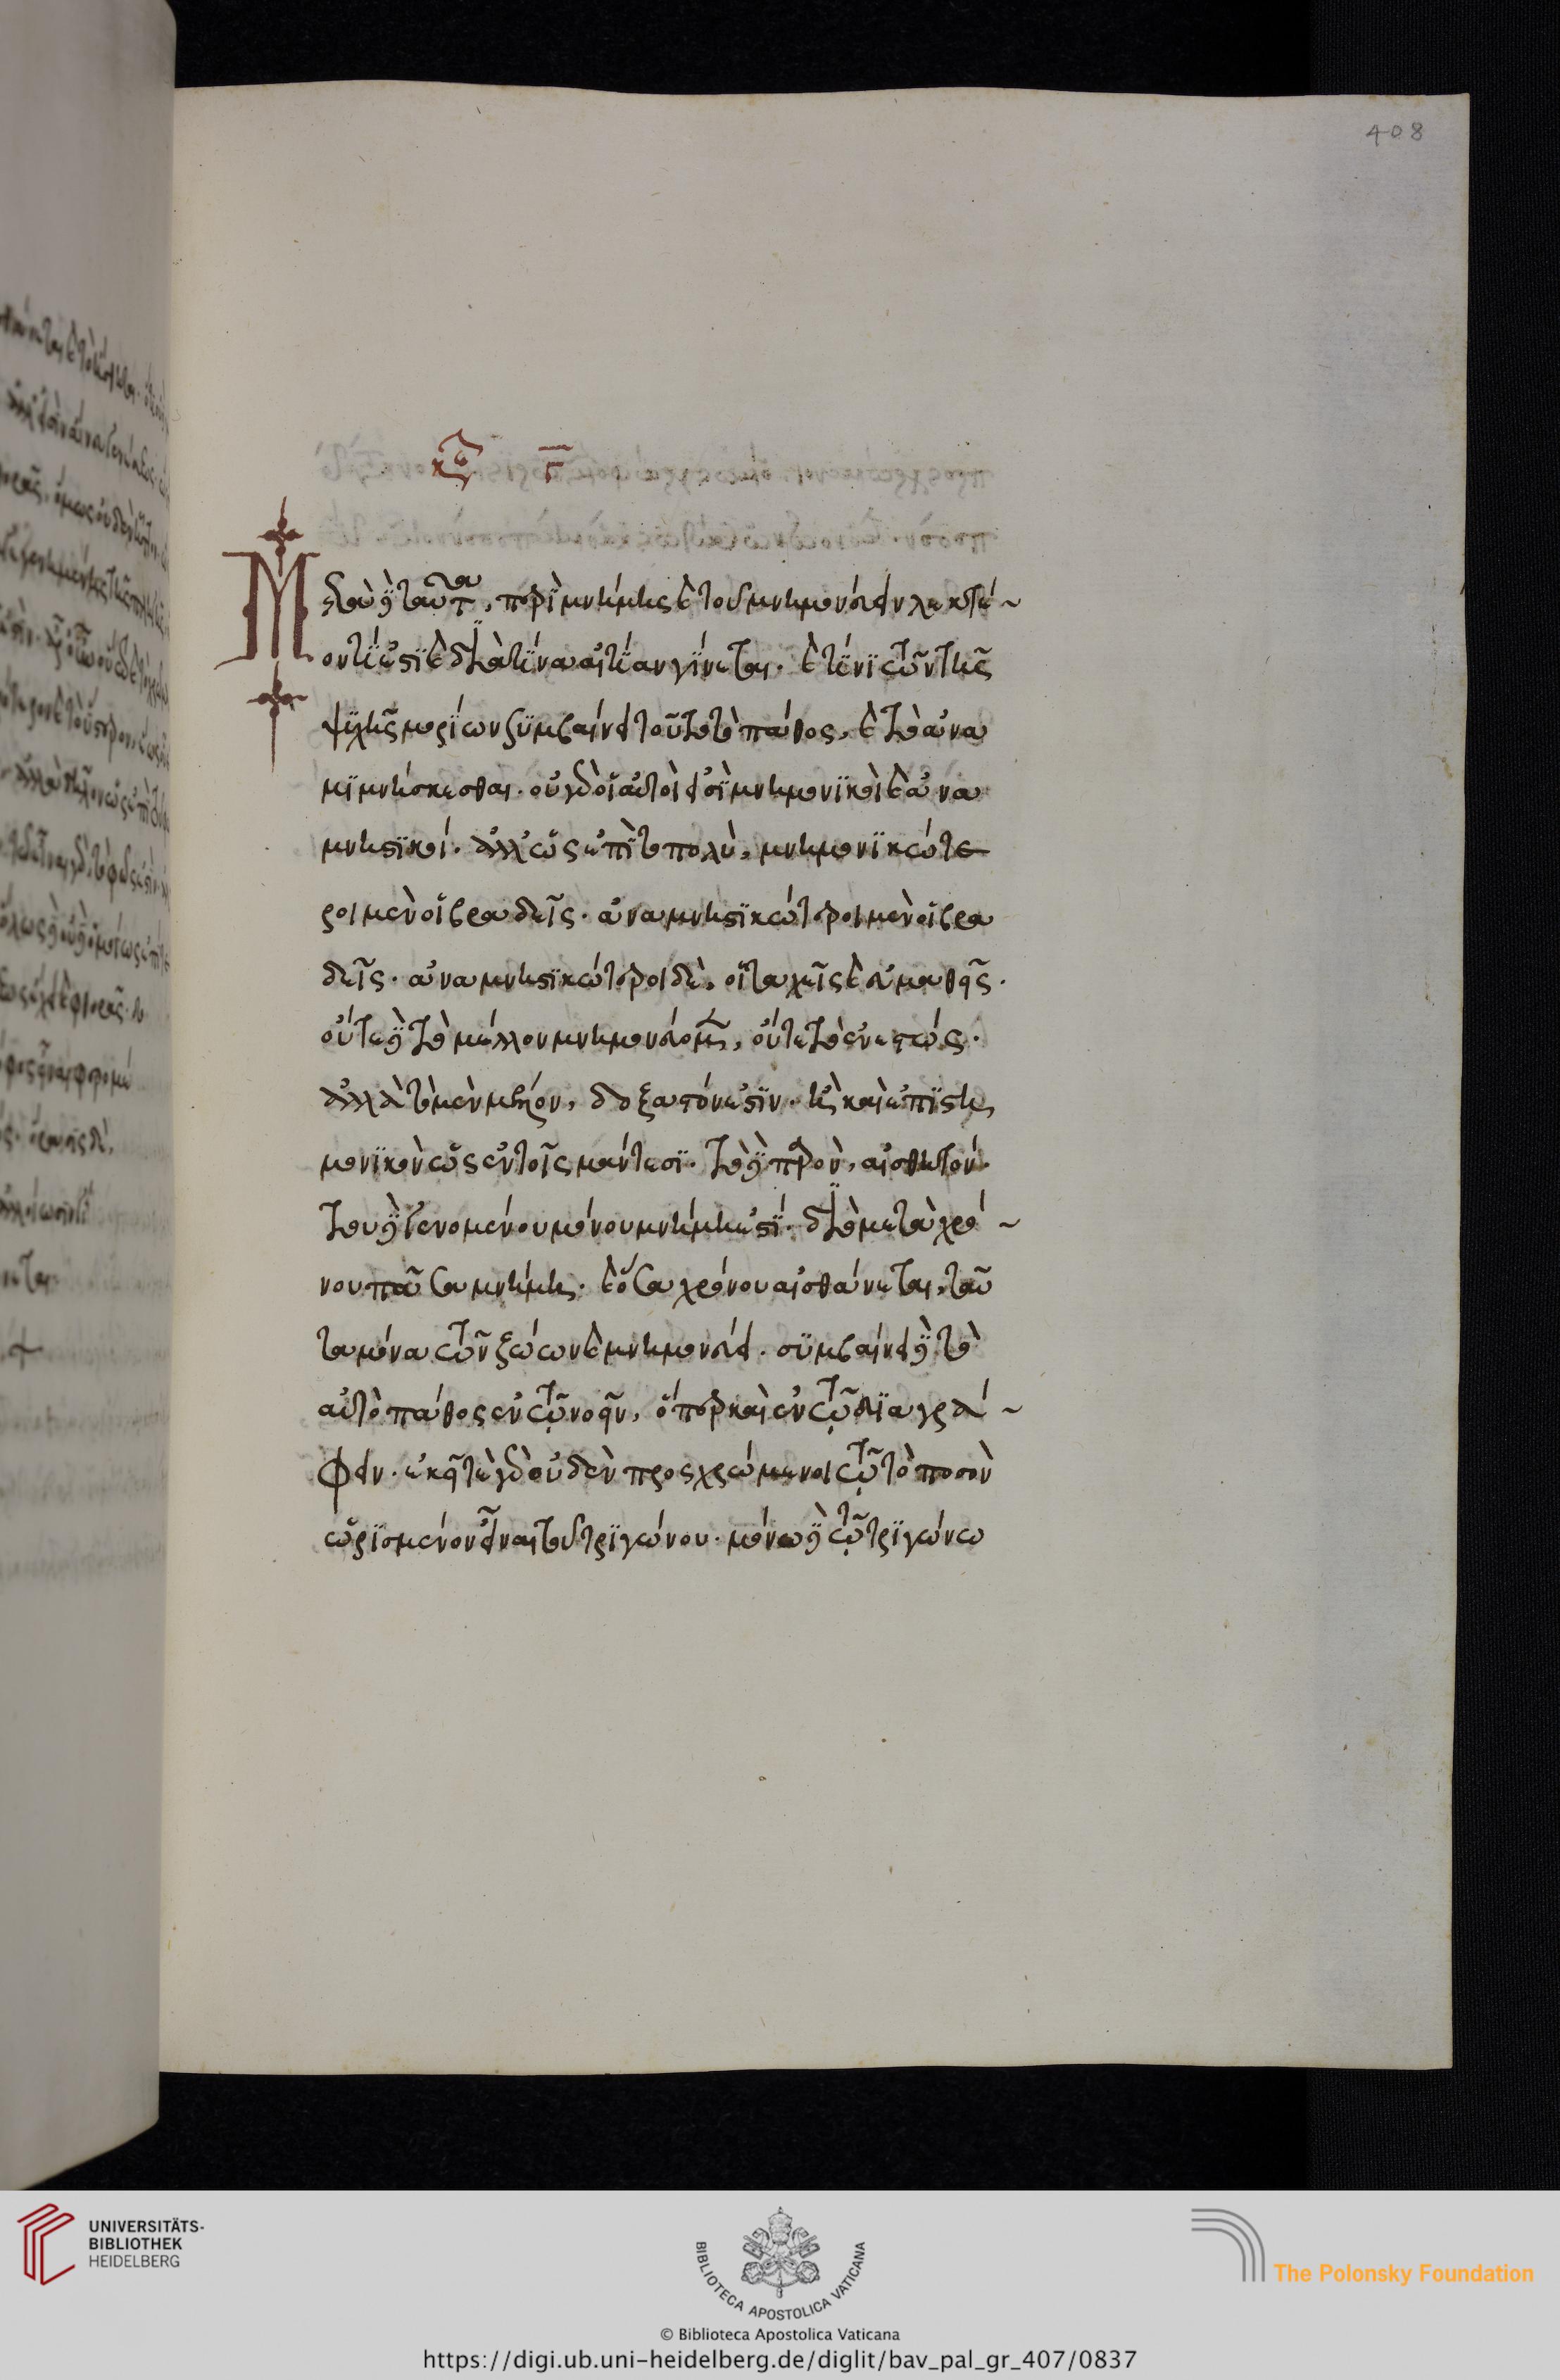 408
κεφ Γ
Μετὰ δὲ ταῦτα, περὶ μνήμης καὶ τοῦ μνημονεύειν λεκτέ
ον τί ἐστι καὶ διὰ τίνα αἰτίαν γίνεται. καὶ τίνι τῶν τῆς
ψυχῆς μορίων συμβαίνει τοῦτο τὸ πάθος, καὶ τὸ ἀνα
μιμνήσκεσθαι. οὐ γὰρ οἱ αὐτοὶ εἰσὶ μνημονικοὶ καὶ ἀνα
μνηστικοί. ἀλλ' ὡς ἐπὶ τὸ πολὺ, μνημονικώτε
ροι μὲν οἱ βραδεῖς. ἀναμνηστικώτεροι μὲν οἱ βρα
δεῖς. ἀναμνηστικώτεροι δὲ, οἱ ταχεῖς καὶ εὐμαθεῖς.
οὔτε δὲ τὸ μέλλον μνημονεύομεν, οὔτε τὸ ἐνεστώς.
ἀλλὰ τὸ μὲν μέλλον, δοξαστόν ἐστιν. ἢ καὶ ἐπιστη
μονικὸν ὡς ἐν τοῖς μάντεσι. τὸ δὲ παρὸν, αἰσθητόν.
τοῦ δὲ γενομένου μόνου μνήμη ἐστί. διὸ μετὰ χρό
νου πᾶσα μνήμη. καὶ ὅσα χρόνου αἰσθάνεται, ταῦ
τα μόνα τῶν ζώων καὶ μνημονεύει. συμβαίνει δὲ τὸ
αὐτὸ πάθος ἐν τῷ νοεῖν, ὅπερ καὶ ἐν τῷ διαγρά
φειν. ἐκεῖ τε γὰρ οὐδὲν προσχρώμενοι τῷ τὸ ποσὸν
ὡρισμένον εἶναι τοῦ τριγώνου. μόνω δὲ τῷ τριγώνω
UNIVERSITÄTS-
BIBLIOTHEK
HEIDELBERG
BIBLIOTECA APOSTOLICA VATICANA
The Polonsky Foundation
© Biblioteca Apostolica Vaticana
https://digi.ub.uni-heidelberg.de/diglit/bav_pal_gr_407/0837